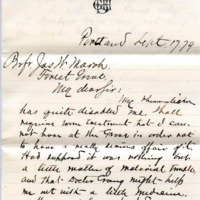 Portland Sept. 17, 79
Prof. Jas. W. Marsh,
Forest Grove
My dear Sir:
My Rheumatism
has quite disabled me. Shall
require some treatment that I can
not have at the Grove in order not
to have a really serious affair of it.
Had supposed it was nothing but
a little matter of malarial trouble
and that Doctor might help
me out with a little medicine.